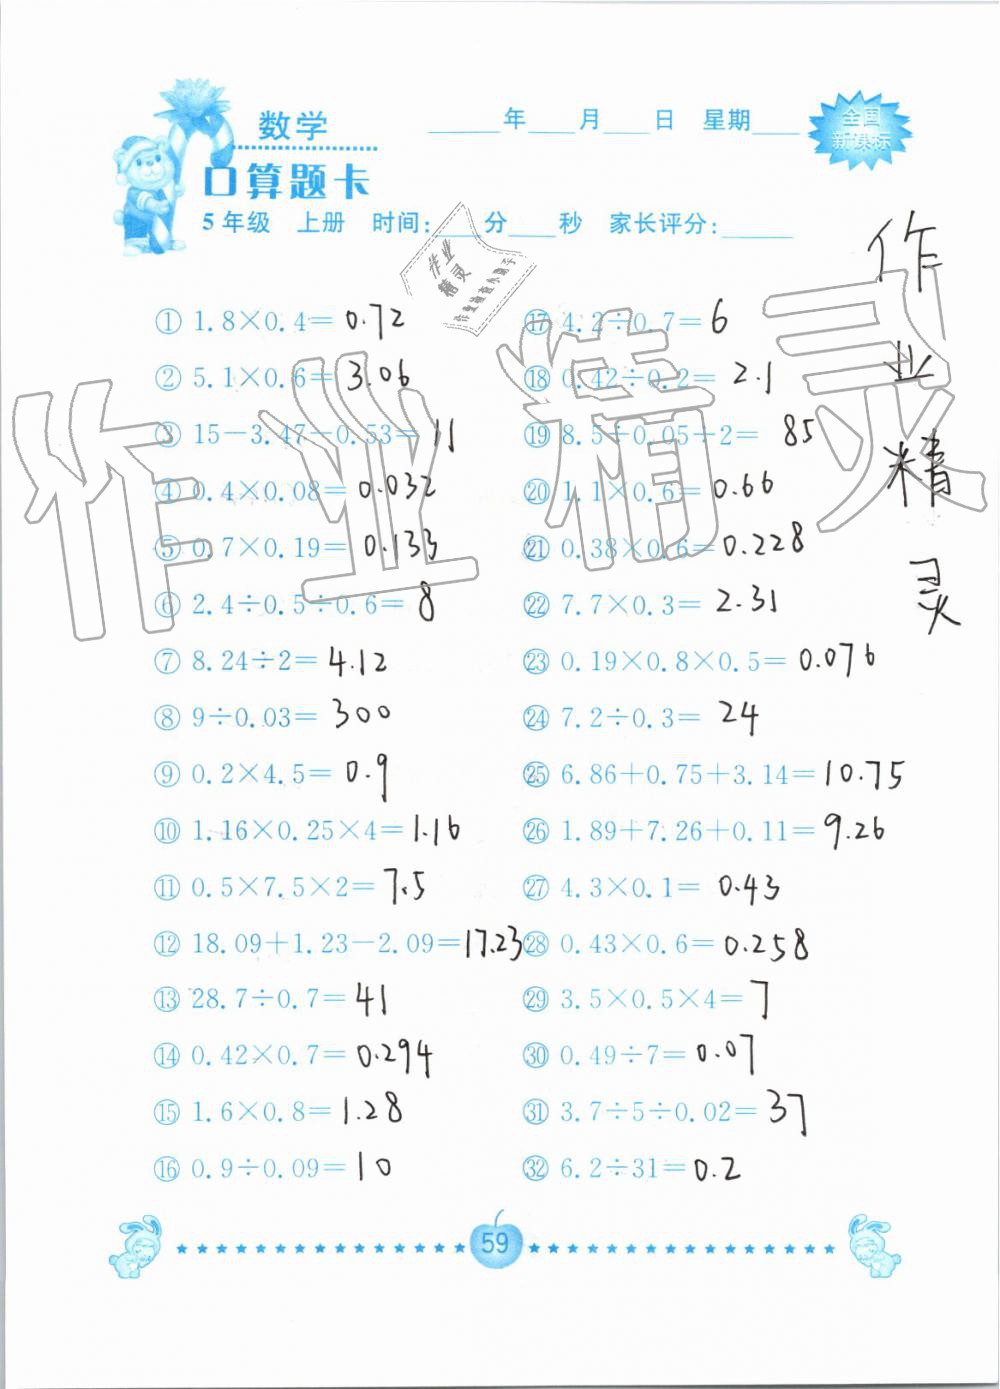 数学
____年____月____日 星期____
全国
新课标
口算题卡
5年级 上册 时间:____分____秒 家长评分:____
作业
精灵
作
业
精
灵
作业精灵
① 1.8×0.4= 0.72
② 5.1×0.6= 3.06
③ 15-3.47-0.53= 11
④ 0.4×0.08= 0.032
⑤ 0.7×0.19= 0.133
⑥ 2.4÷0.5÷0.6= 8
⑦ 8.24÷2= 4.12
⑧ 9÷0.03= 300
⑨ 0.2×4.5= 0.9
⑩ 1.16×0.25×4= 1.16
⑪ 0.5×7.5×2= 7.5
⑫ 18.09+1.23-2.09= 17.23
⑬ 28.7÷0.7= 41
⑭ 0.42×0.7= 0.294
⑮ 1.6×0.8= 1.28
⑯ 0.9÷0.09= 10
⑰ 4.2÷0.7= 6
⑱ 0.42÷0.2= 2.1
⑲ 8.5÷0.05÷2= 85
⑳ 1.1×0.6= 0.66
㉑ 0.38×0.6= 0.228
㉒ 7.7×0.3= 2.31
㉓ 0.19×0.8×0.5= 0.076
㉔ 7.2÷0.3= 24
㉕ 6.86+0.75+3.14= 10.75
㉖ 1.89+7.26+0.11= 9.26
㉗ 4.3×0.1= 0.43
㉘ 0.43×0.6= 0.258
㉙ 3.5×0.5×4= 7
㉚ 0.49÷7= 0.07
㉛ 3.7÷5÷0.02= 37
㉜ 6.2÷31= 0.2
59